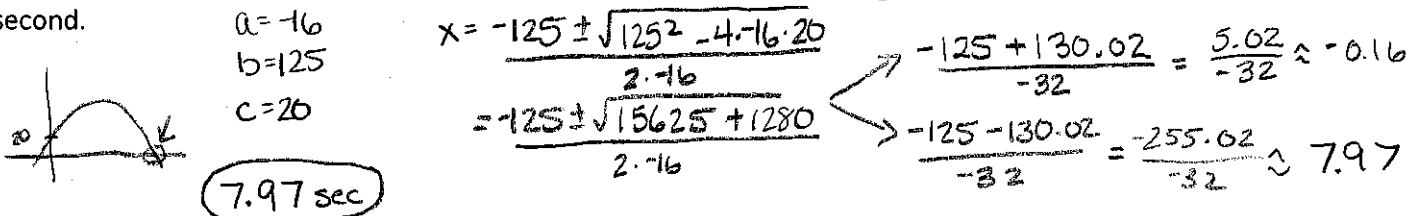 second.
a=-16
b=125
c=20
20
7.97 sec
x = -125 ± √125² - 4·-16·20
2·-16
= -125 ± √15625 + 1280
2·-16
-125 + 130.02 = 5.02 ≈ -0.16
-32 -32
-125 - 130.02 = -255.02 ≈ 7.97
-32 -32